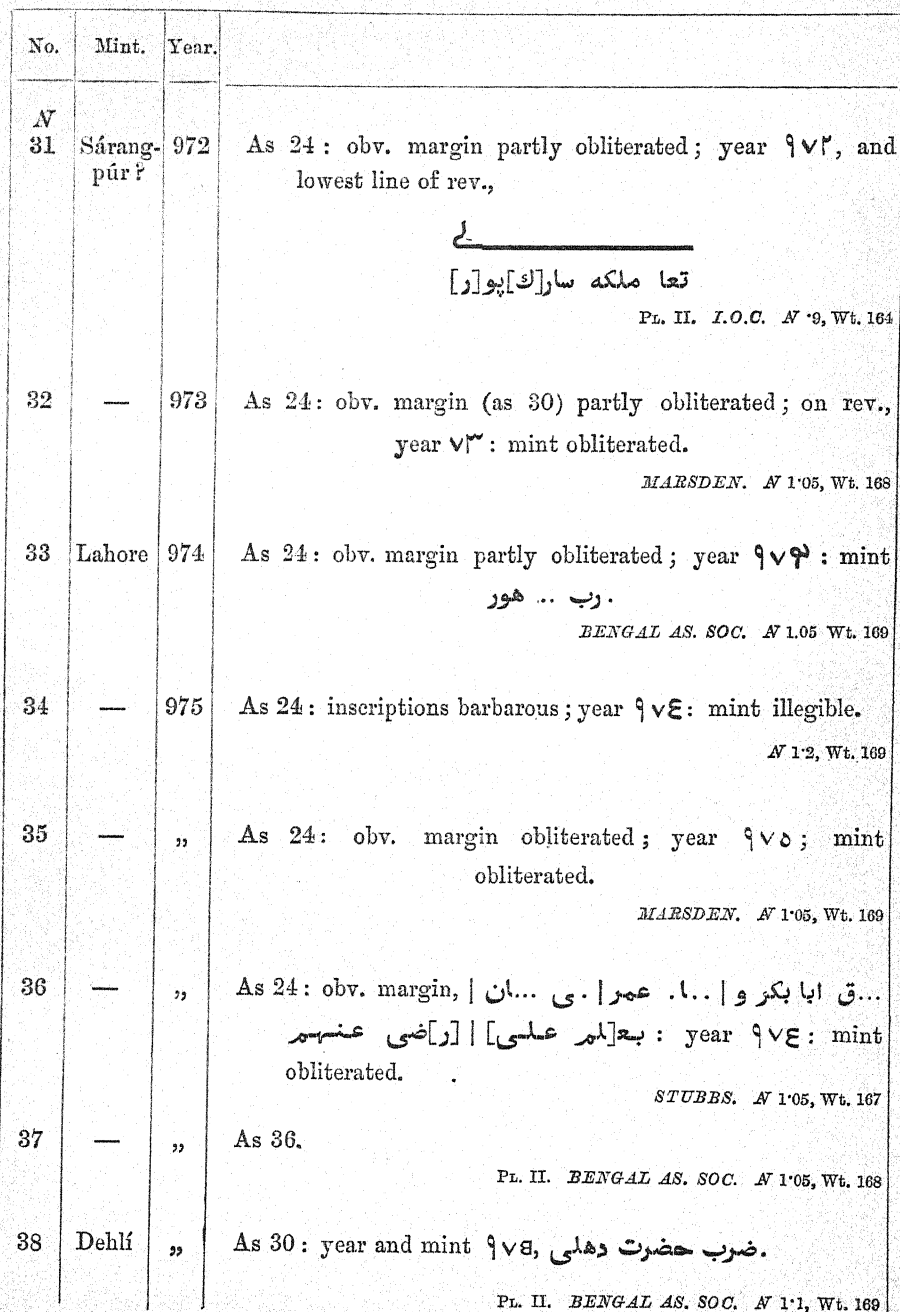 No. Mint. Year.
N
31 Sárang- 972 As 24 : obv. margin partly obliterated ; year ۹۷۲, and
púr ? lowest line of rev.,
لے
تعا ملكه سار[ك]پو[ر]
Pl. II. I.O.C. N ·9, Wt. 164
32 — 973 As 24 : obv. margin (as 30) partly obliterated ; on rev.,
year ۷۳ : mint obliterated.
MARSDEN. N 1·05, Wt. 168
33 Lahore 974 As 24 : obv. margin partly obliterated ; year ۹۷۴ : mint
رب ... هور.
BENGAL AS. SOC. N 1.05 Wt. 169
34 — 975 As 24 : inscriptions barbarous ; year ۹۷٤ : mint illegible.
N 1·2, Wt. 169
35 — ,, As 24 : obv. margin obliterated ; year ۹۷۵ ; mint
obliterated.
MARSDEN. N 1·05, Wt. 169
36 — ,, As 24 : obv. margin, ...ق ابا بكر و | ..ا. عمر | . ى ...ان |
بع[لم علـى] | [ر]ضى عنهم : year ۹۷٤ : mint
obliterated.
STUBBS. N 1·05, Wt. 167
37 — ,, As 36.
Pl. II. BENGAL AS. SOC. N 1·05, Wt. 168
38 Dehlí ,, As 30 : year and mint ۹۷۵, ضرب حضرت دهلى.
Pl. II. BENGAL AS. SOC. N 1·1, Wt. 169